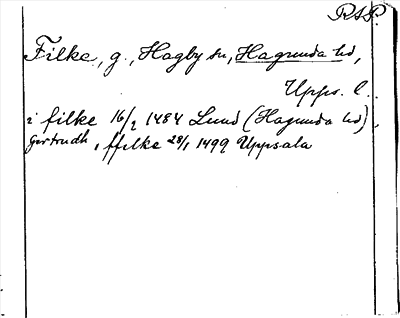 RAP.
Filke, g., Hagby sn, Hagunda hd,
Upps. l.
i filke 16/2 1484 Lund (Hagunda hd)
Gertrudh, i ffilke 28/1 1499 Uppsala